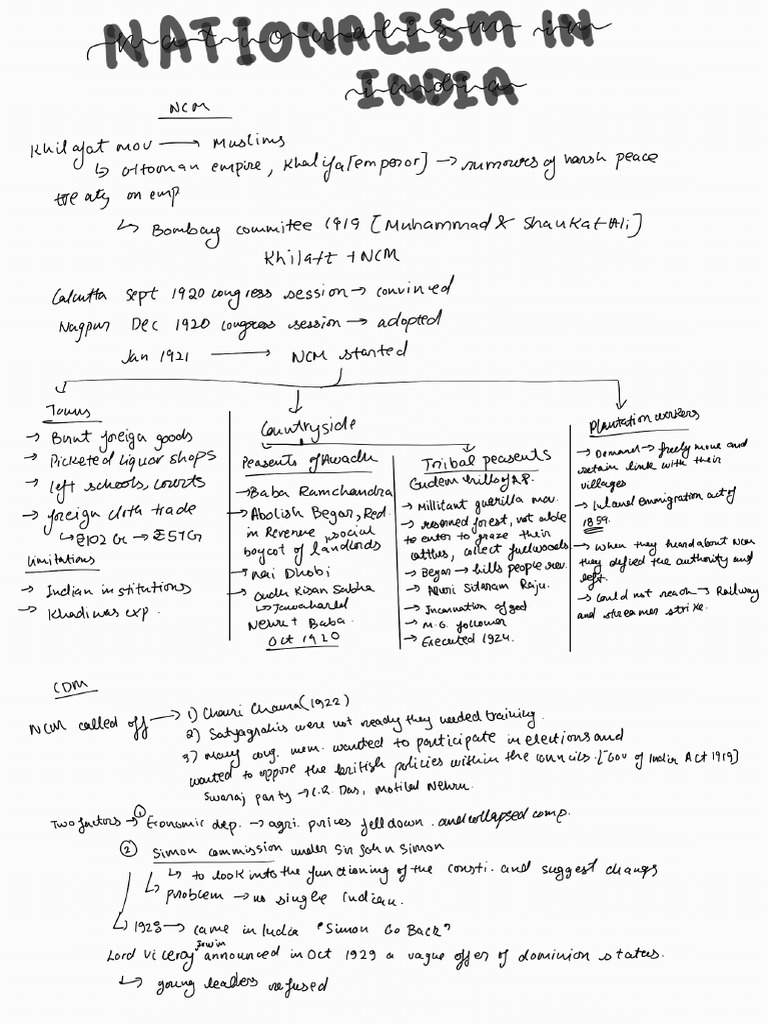 NATIONALISM IN
INDIA
NCM
Khilafat mov → Muslims
↳ ottoman empire, Khalifa [emperor] → rumours of harsh peace
treaty on emp
↳ Bombay commitee 1919 [Muhammad & Shaukat Ali]
Khilaft + NCM
Calcutta Sept 1920 congress session → convinced
Nagpur Dec 1920 congress session → adopted
Jan 1921 → NCM started
Towns
→ Burnt foreign goods
→ Picketed liquor shops
→ left schools, courts
→ foreign cloth trade
↳ ₹102 Cr → ₹57 Cr
limitations
→ Indian institutions
→ Khadi was exp.
Countryside
Peasents of Awadh
→ Baba Ramchandra
→ Abolish Begar, Red.
in Revenue, social
boycot of landlords
→ nai Dhobi
→ Oudh Kisan Sabha
↳ Jawaharlal
Nehru + Baba.
Oct 1920
Tribal peasents
Gudem hills of A.P.
→ Millitant guerilla mov.
→ reserved forest, not able
to enter to graze their
cattles, collect fuelwoods
→ Begar → hills people rev.
→ Alluri Sitaram Raju.
→ Incarnation of god
→ M.G. follower
→ Executed 1924.
Plantation workers
→ Demand → freely move and
retain link with their
villages
→ Inland emmigration act of
1859.
→ when they heard about NCM
they defied the authority and
left.
→ could not reach → Railway
and streamer strike.
CDM
NCM called off → 1) Chauri Chaura (1922)
2) Satyagrahis were not ready they needed training.
3) many cong. mem. wanted to participate in elections and
wanted to oppose the british policies within the councils. [Gov of India Act 1919]
Swaraj party → C.R. Das, Motilal Nehru.
Two factors → ① Economic dep. → agri. prices fell down. and collapsed comp.
② Simon commission under Sir John Simon
↳ to look into the functioning of the consti. and suggest changs
↳ problem → no single Indian.
↳ 1928 → came in India "Simon Go Back"
Lord viceroy Irwin announced in Oct 1929 a vague offer of dominion status.
↳ young leaders refused